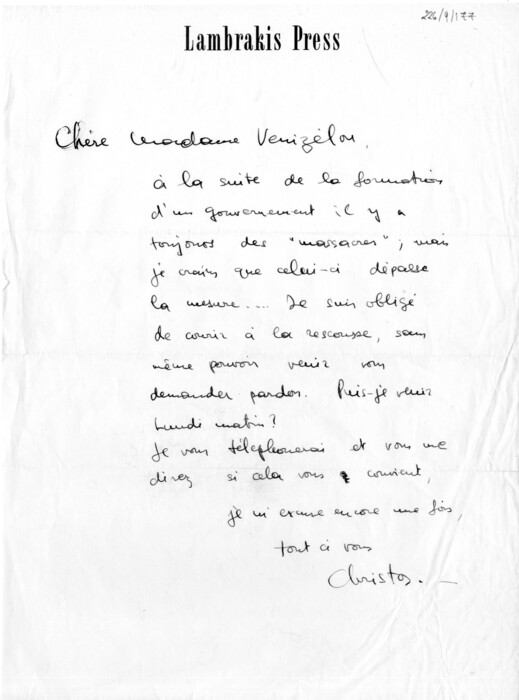 226/9/177
Lambrakis Press
Chère Madame Venizélou,
à la suite de la formation
d'un gouvernement il y a
toujours des "massacres" ; mais
je crains que celui-ci dépasse
la mesure.... Je suis obligé
de courir à la rescousse, sans
même pouvoir venir vous
demander pardon. Puis-je venir
Lundi matin?
Je vous téléphonerai et vous me
direz si cela vous convient,
je m'excuse encore une fois,
tout à vous
Christos. —